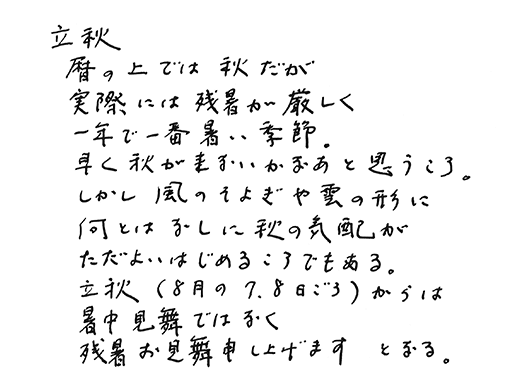 立秋
暦の上では 秋だが
実際には 残暑が厳しく
一年で一番暑い季節。
早く秋が来ないかなあと思うころ。
しかし 風のそよぎや雲の形に
何とはなしに秋の気配が
ただよいはじめるころでもある。
立秋(8月の7.8日ごろ)からは
暑中見舞ではなく
残暑お見舞申し上げます となる。